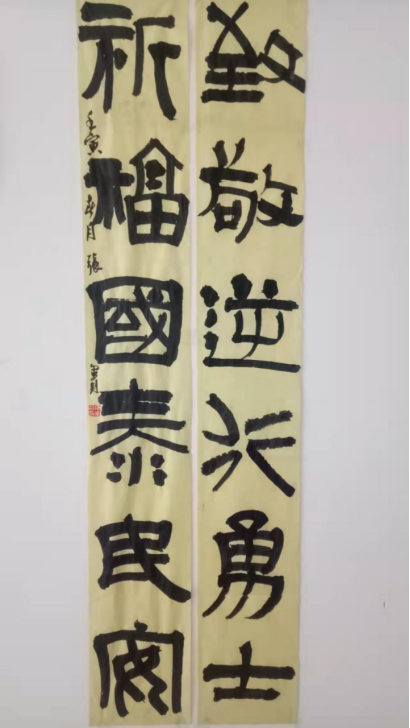 致敬逆行勇士
祈福國泰民安
壬寅春月張